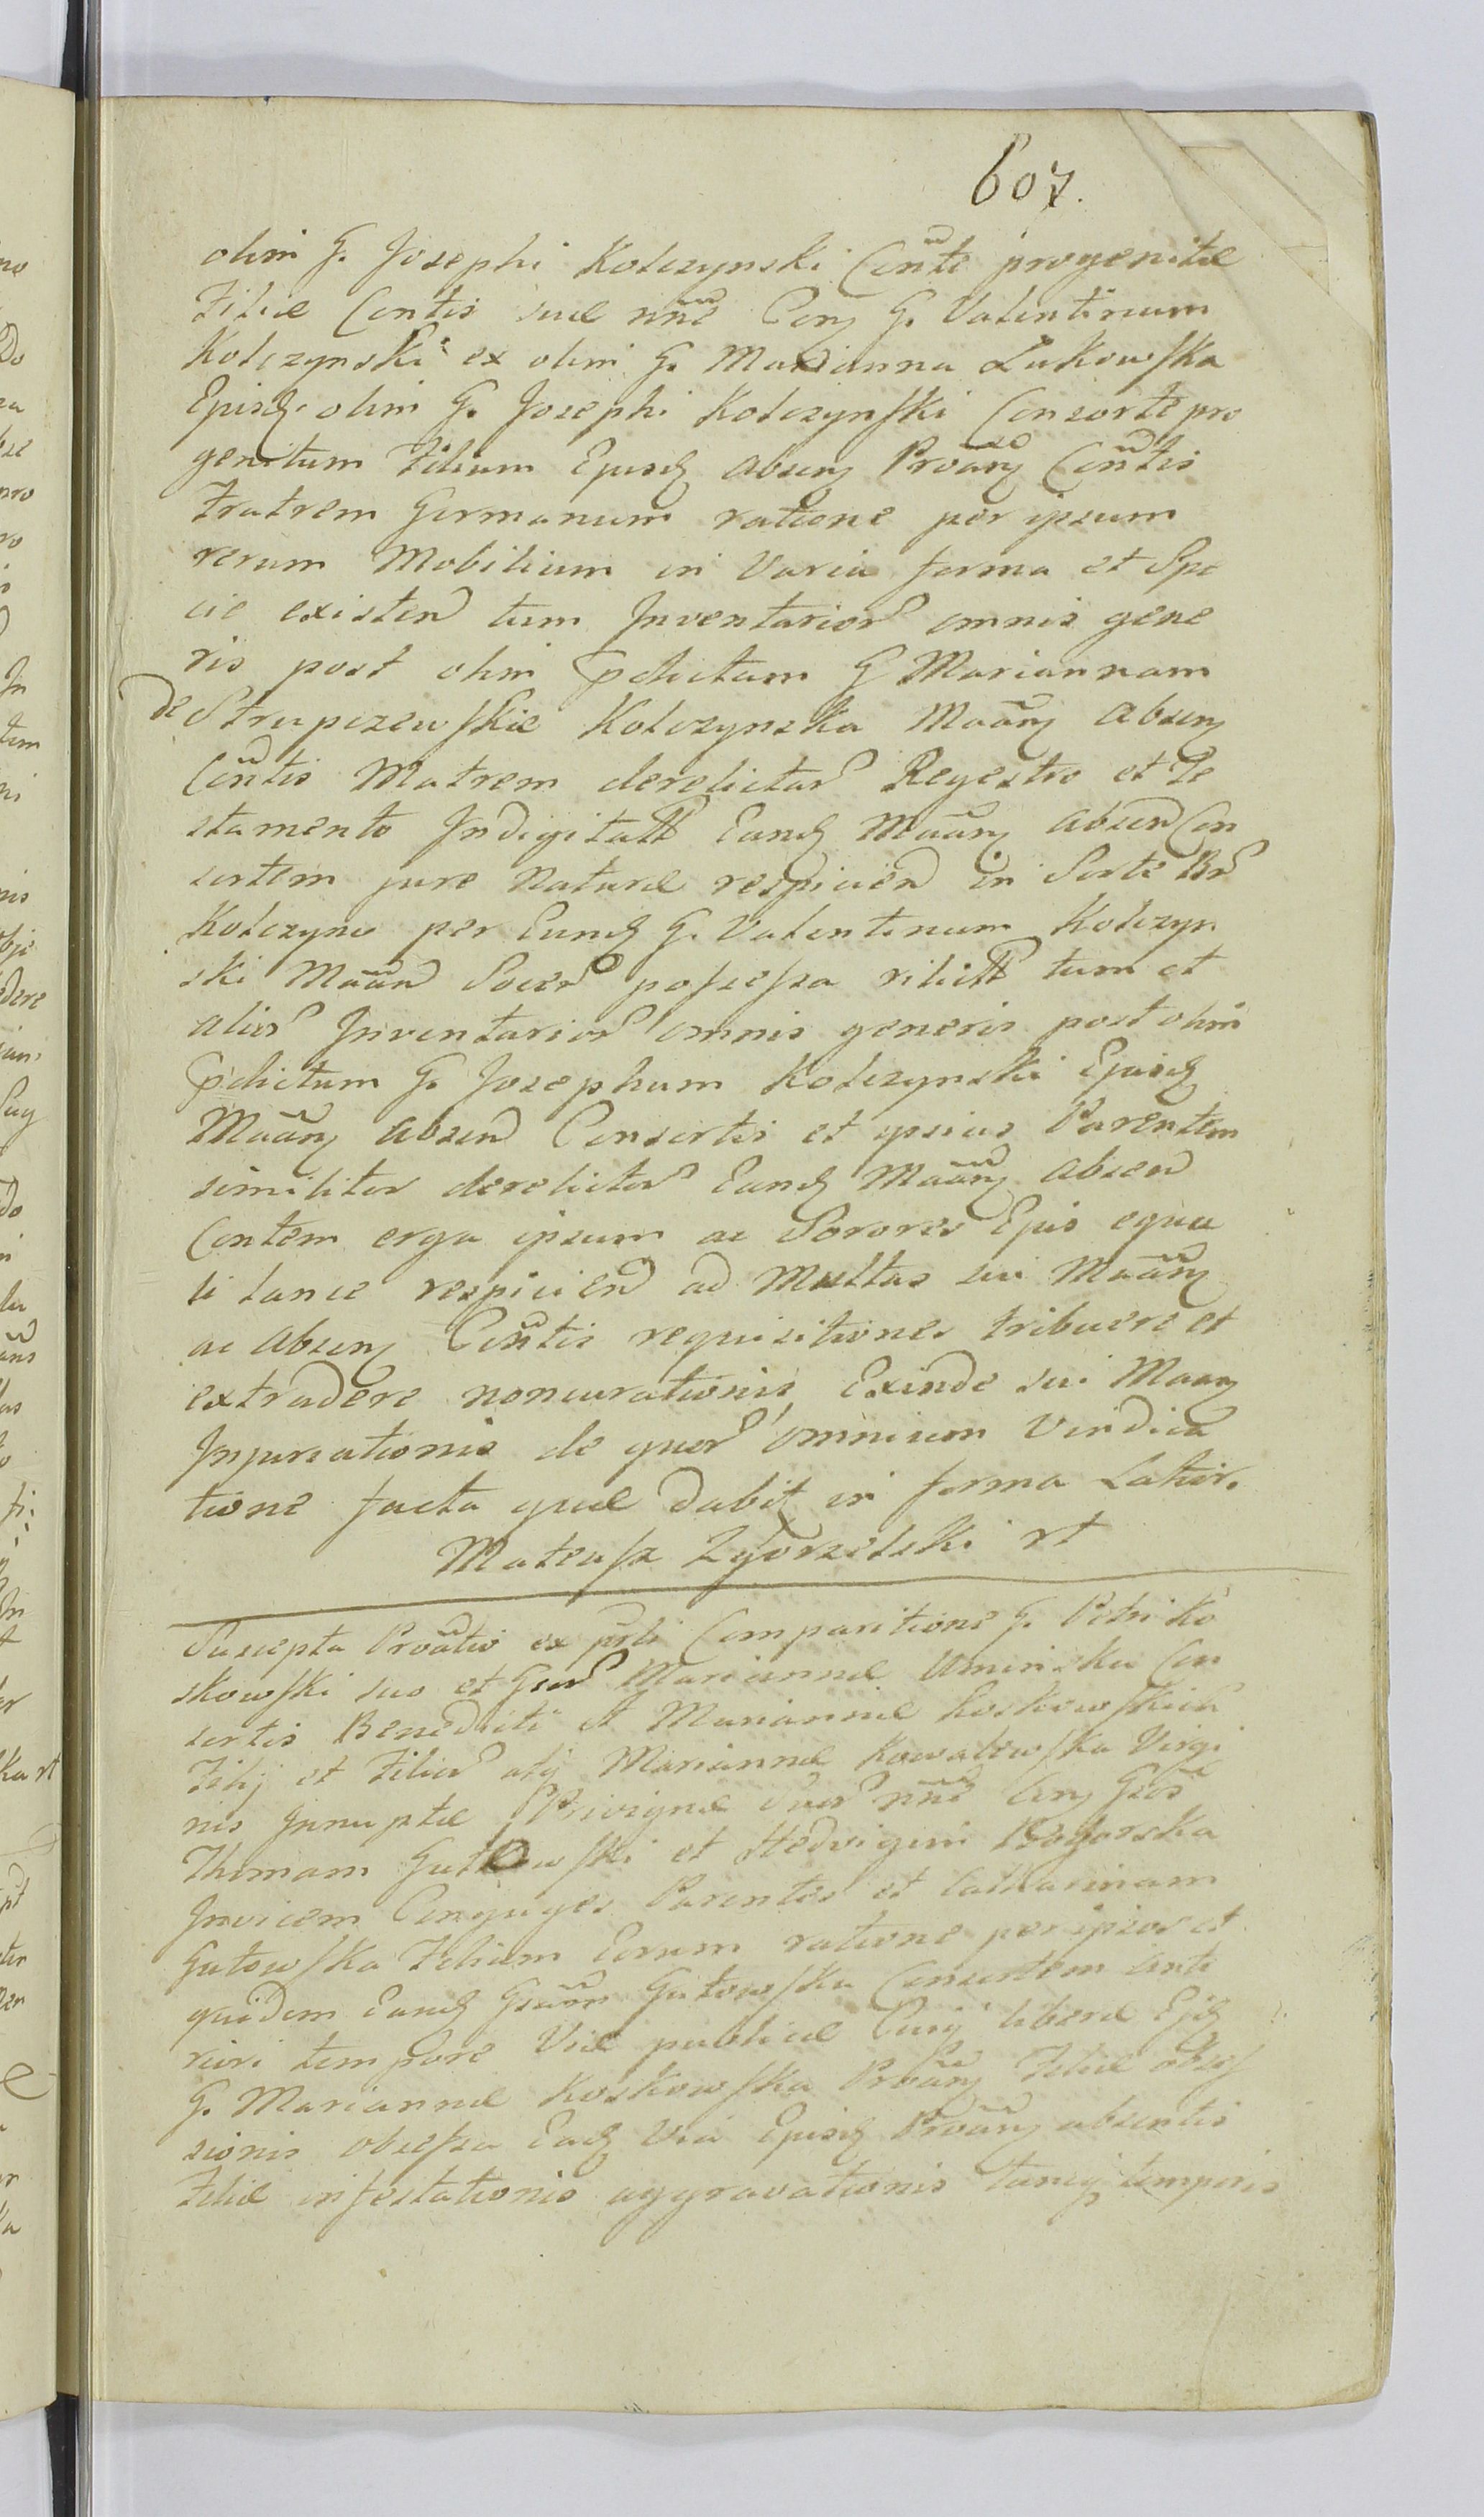 607.
olim G. Josephi Kolczynski Cõnte progenitæ
Filiæ Contis suæ nñe Conŋ G. Valentinum
Kolczynski ex olim G. Marianna Łukowska
Ejusdꝫ olim G. Josephi Kolczynski Consorte pro
genitum Filium Ejusdꝫ absenŋ Proãnŋ Cõntis
Fratrem Germanum ratione per ipsum
rerum Mobilium in Varia forma et Spe
cie existen tum Inventarior omnis gene
ris post olim Pdictam G Mariannam
de Strupczewskie Kolczynska Maãnŋ absenŋ
Cõntis Matrem derelictar Regestro et Te
stamento Indigitatt Eandꝫ Maãnŋ absen Con
sortem jure Naturæ respicien in Sorte Bñ
Kolczyno per Eundꝫ G. Valentinum Kolczyn
ski Maãn possessa relictt tum et
alior Inventarior omnis generis post olim
Pdictum G. Josephum Kolczynski Ejusdꝫ
Maãnŋ absen Consortis et ipsius Parentem
similiter derelictor Eandꝫ Maãnŋ absen
Contem erga ipsum ac Sorores Ejus equa
li lance respicien ad Multas sui Maãnŋ
ac absenŋ Cõntis requisitiones tribuere et
extradere noncurationis, Exinde sui Maanŋ
Injuriationis de quor omnium Vindica
tione facta quæ dabit in forma Latior.
Mateusz Zgorzelski rt
Suscepta Proãtio ex prli Comparitione G. Petri Ko
skowski suo et Gsor Mariannæ Uminska Con
sortis Benedicti et Mariannæ Koskowskich
Filij et Filiar atq Mariannæ Kowalewska Virgi
nis Innuptæ Privignæ Suor nñe Conŋ Gsos
Thomam Gutowski et Hedvigim Rogorska
Invicem Conjuges Parentes et Catharinam
Gutowska Filiam Eorum ratione per ipsos et
quidem Eandꝫ Gsãm Gutowska Consortem
tempore Viæ publicæ liberæ Ejdꝫ
G. Mariannæ Koskowska Proãnŋ Filiæ obses
sionis obsessa Eadꝫ Via Ejusdꝫ Proãnŋ absentis
Filiæ infestationis aggravationis temporis